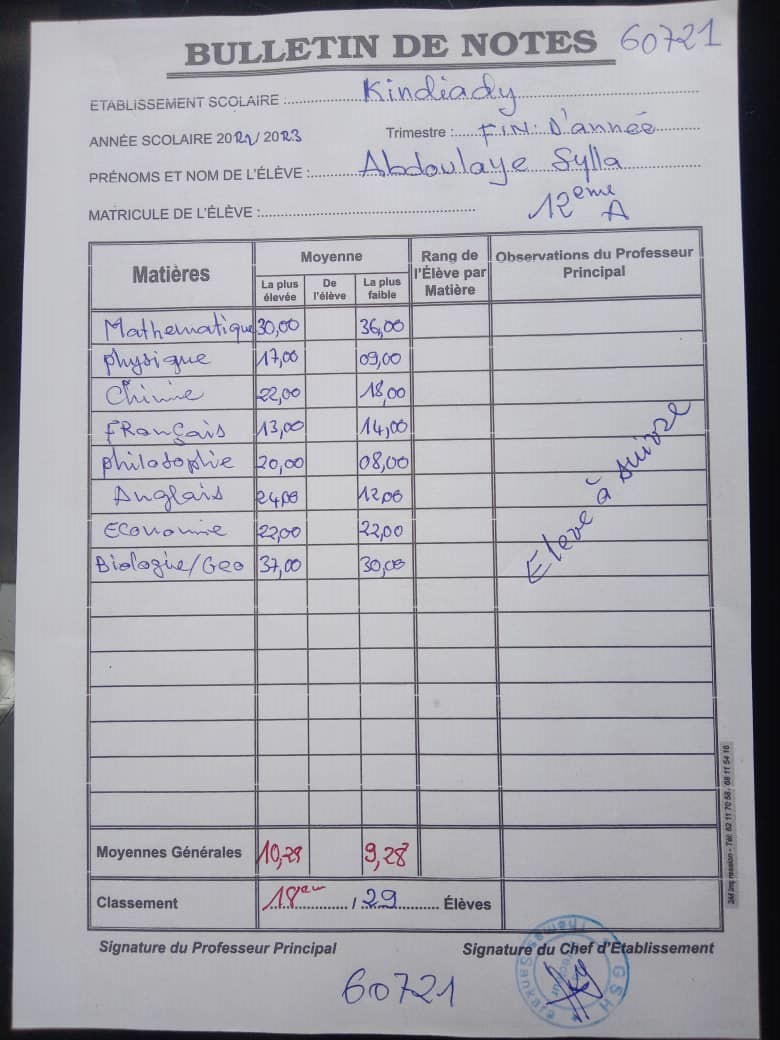 BULLETIN DE NOTES 60721
ETABLISSEMENT SCOLAIRE : Kindiady
ANNÉE SCOLAIRE 2022/ 2023 Trimestre : FIN D'année
PRÉNOMS ET NOM DE L'ÉLÈVE : Abdoulaye Sylla
MATRICULE DE L'ÉLÈVE : 12eme A
Matières Moyenne Rang de l'Élève par Matière Observations du Professeur Principal
La plus élevée De l'élève La plus faible
Mathematique 30,00 36,00
physique 17,00 09,00
Chimie 22,00 18,00
FRançais 13,00 14,00
philosophie 20,00 08,00
Anglais 24,00 12,00
Economie 22,00 22,00
Biologie/Geo 37,00 30,00
Elève à suivre
Moyennes Générales 10,28 9,28
Classement 18eme / 29 Élèves
Signature du Professeur Principal Signature du Chef d'Établissement
60721
GSH Thomas Sankara